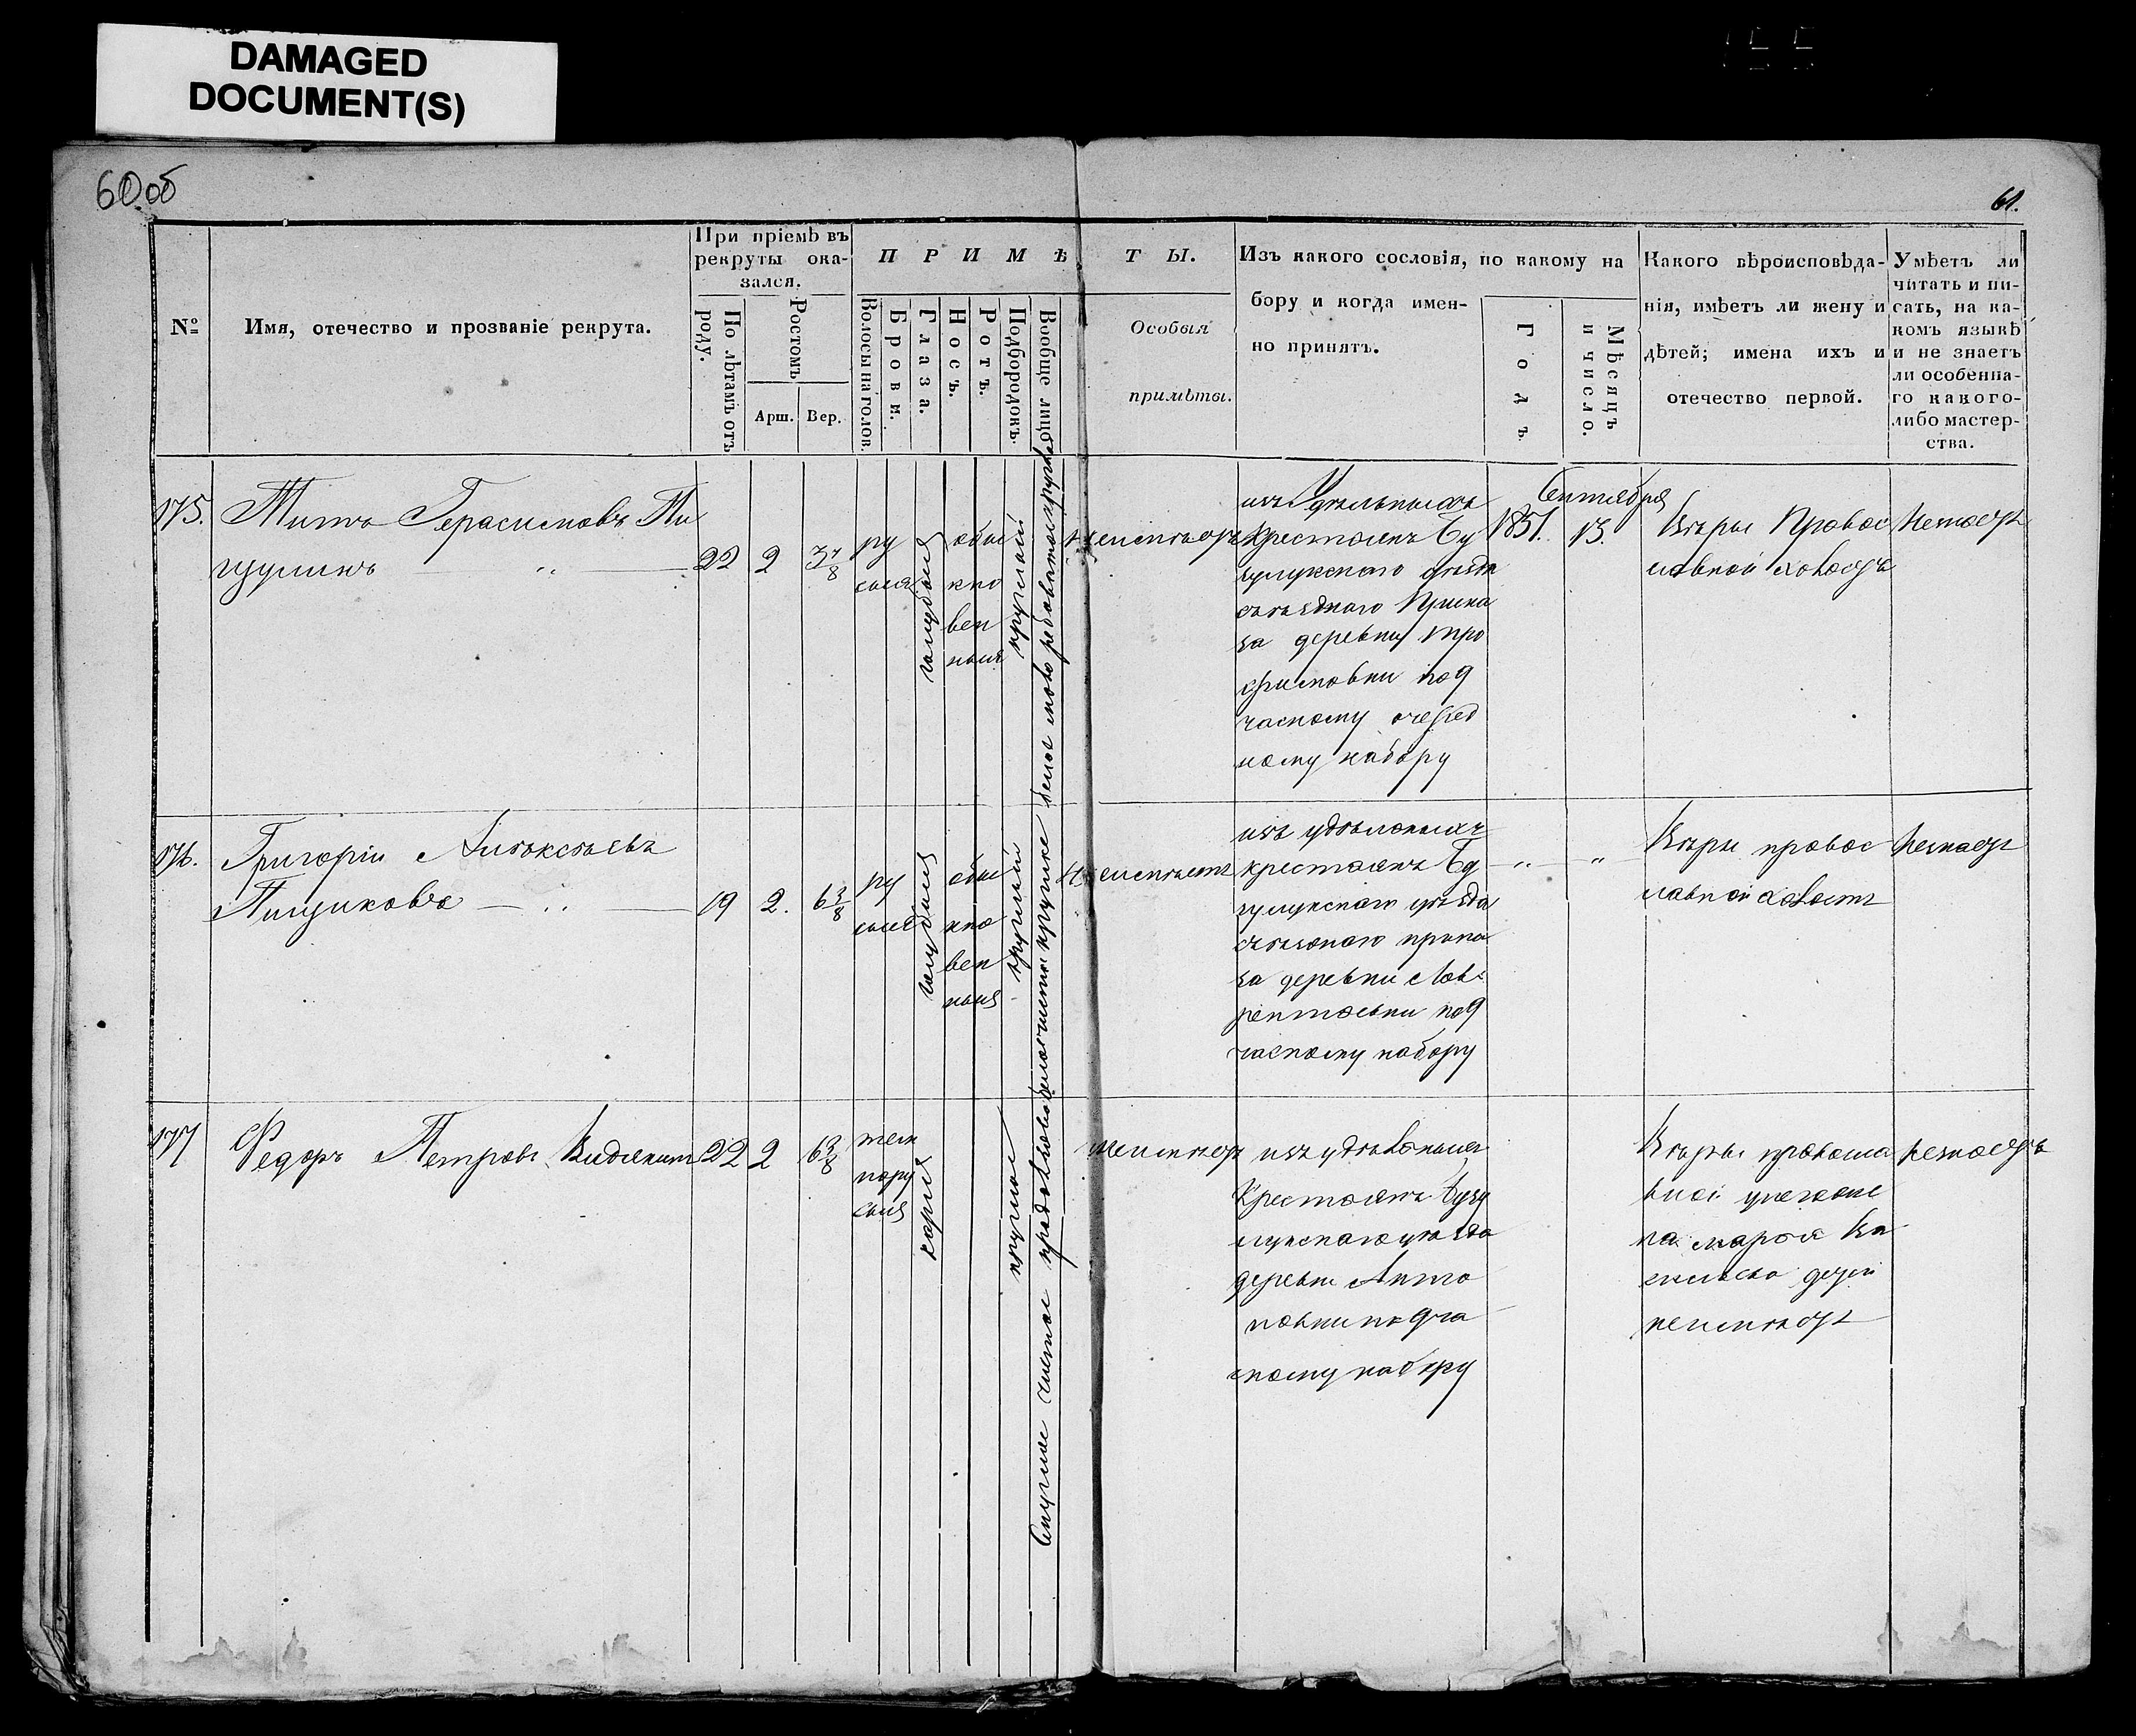 DAMAGED
DOCUMENT(S)
60об
61.
№
Имя, отечество и прозваніе рекрута.
При пріемѣ въ
рекруты ока-
зался.
По лѣтамъ отъ
роду.
Ростомъ
Арш.
Вер.
ПРИМѢ
ТЫ.
Волосы на голов.
Брови.
Глаза.
Носъ.
Ротъ.
Подбородокъ.
Вообще лицо
Особыя
примѣты.
Изъ какого сословія, по какому на
бору и когда имен-
но принятъ.
Годъ
Мѣсяцъ
и число.
Какого вѣроисповѣда-
нія, имѣетъ ли жену и
дѣтей; имена ихъ и
отечество первой.
Умѣетъ ли
читать и пи-
сать, на ка-
комъ языкѣ
и не знаетъ
ли особенна-
го какого-
либо мастер-
ства.
175.
Титъ Герасимовъ
22
2
3 7/8
ру
сыя
голубыя
обы
кно
вен
ныя
круглой
неимѣетъ
изъ Удѣльныхъ
Крестьянъ Бу
зулукскаго уѣзда
за деревни
под
часному очеред
ному набору
1851.
Сентября
13.
Вѣры Правос
лавной холостъ
Незнаетъ
176.
Григорій Алѣксѣевъ
Пищиковъ
19
2.
6 3/8
ру
сыя
голубыя
обы
кно
вен
ныя
круглый
неимѣетъ
изъ удѣльныхъ
крестьянъ Бу
зулукскаго уѣзда
за деревни Лав
рентьевки под
часному набору
Вѣры правос
лавной холостъ
Незнаетъ
177
Федоръ Петровъ Видякинъ
22
2
6 3/8
тем
нору
сыя
карія
круглое
Смуглое чистое
неимѣетъ
изъ удѣльныхъ
Крестьянъ Бузу
лукскаго уѣзда
деревни Анто
новки подча
сному набору
Вѣры правосла
вной
на Марья
дѣтей
неимѣетъ
незнаетъ